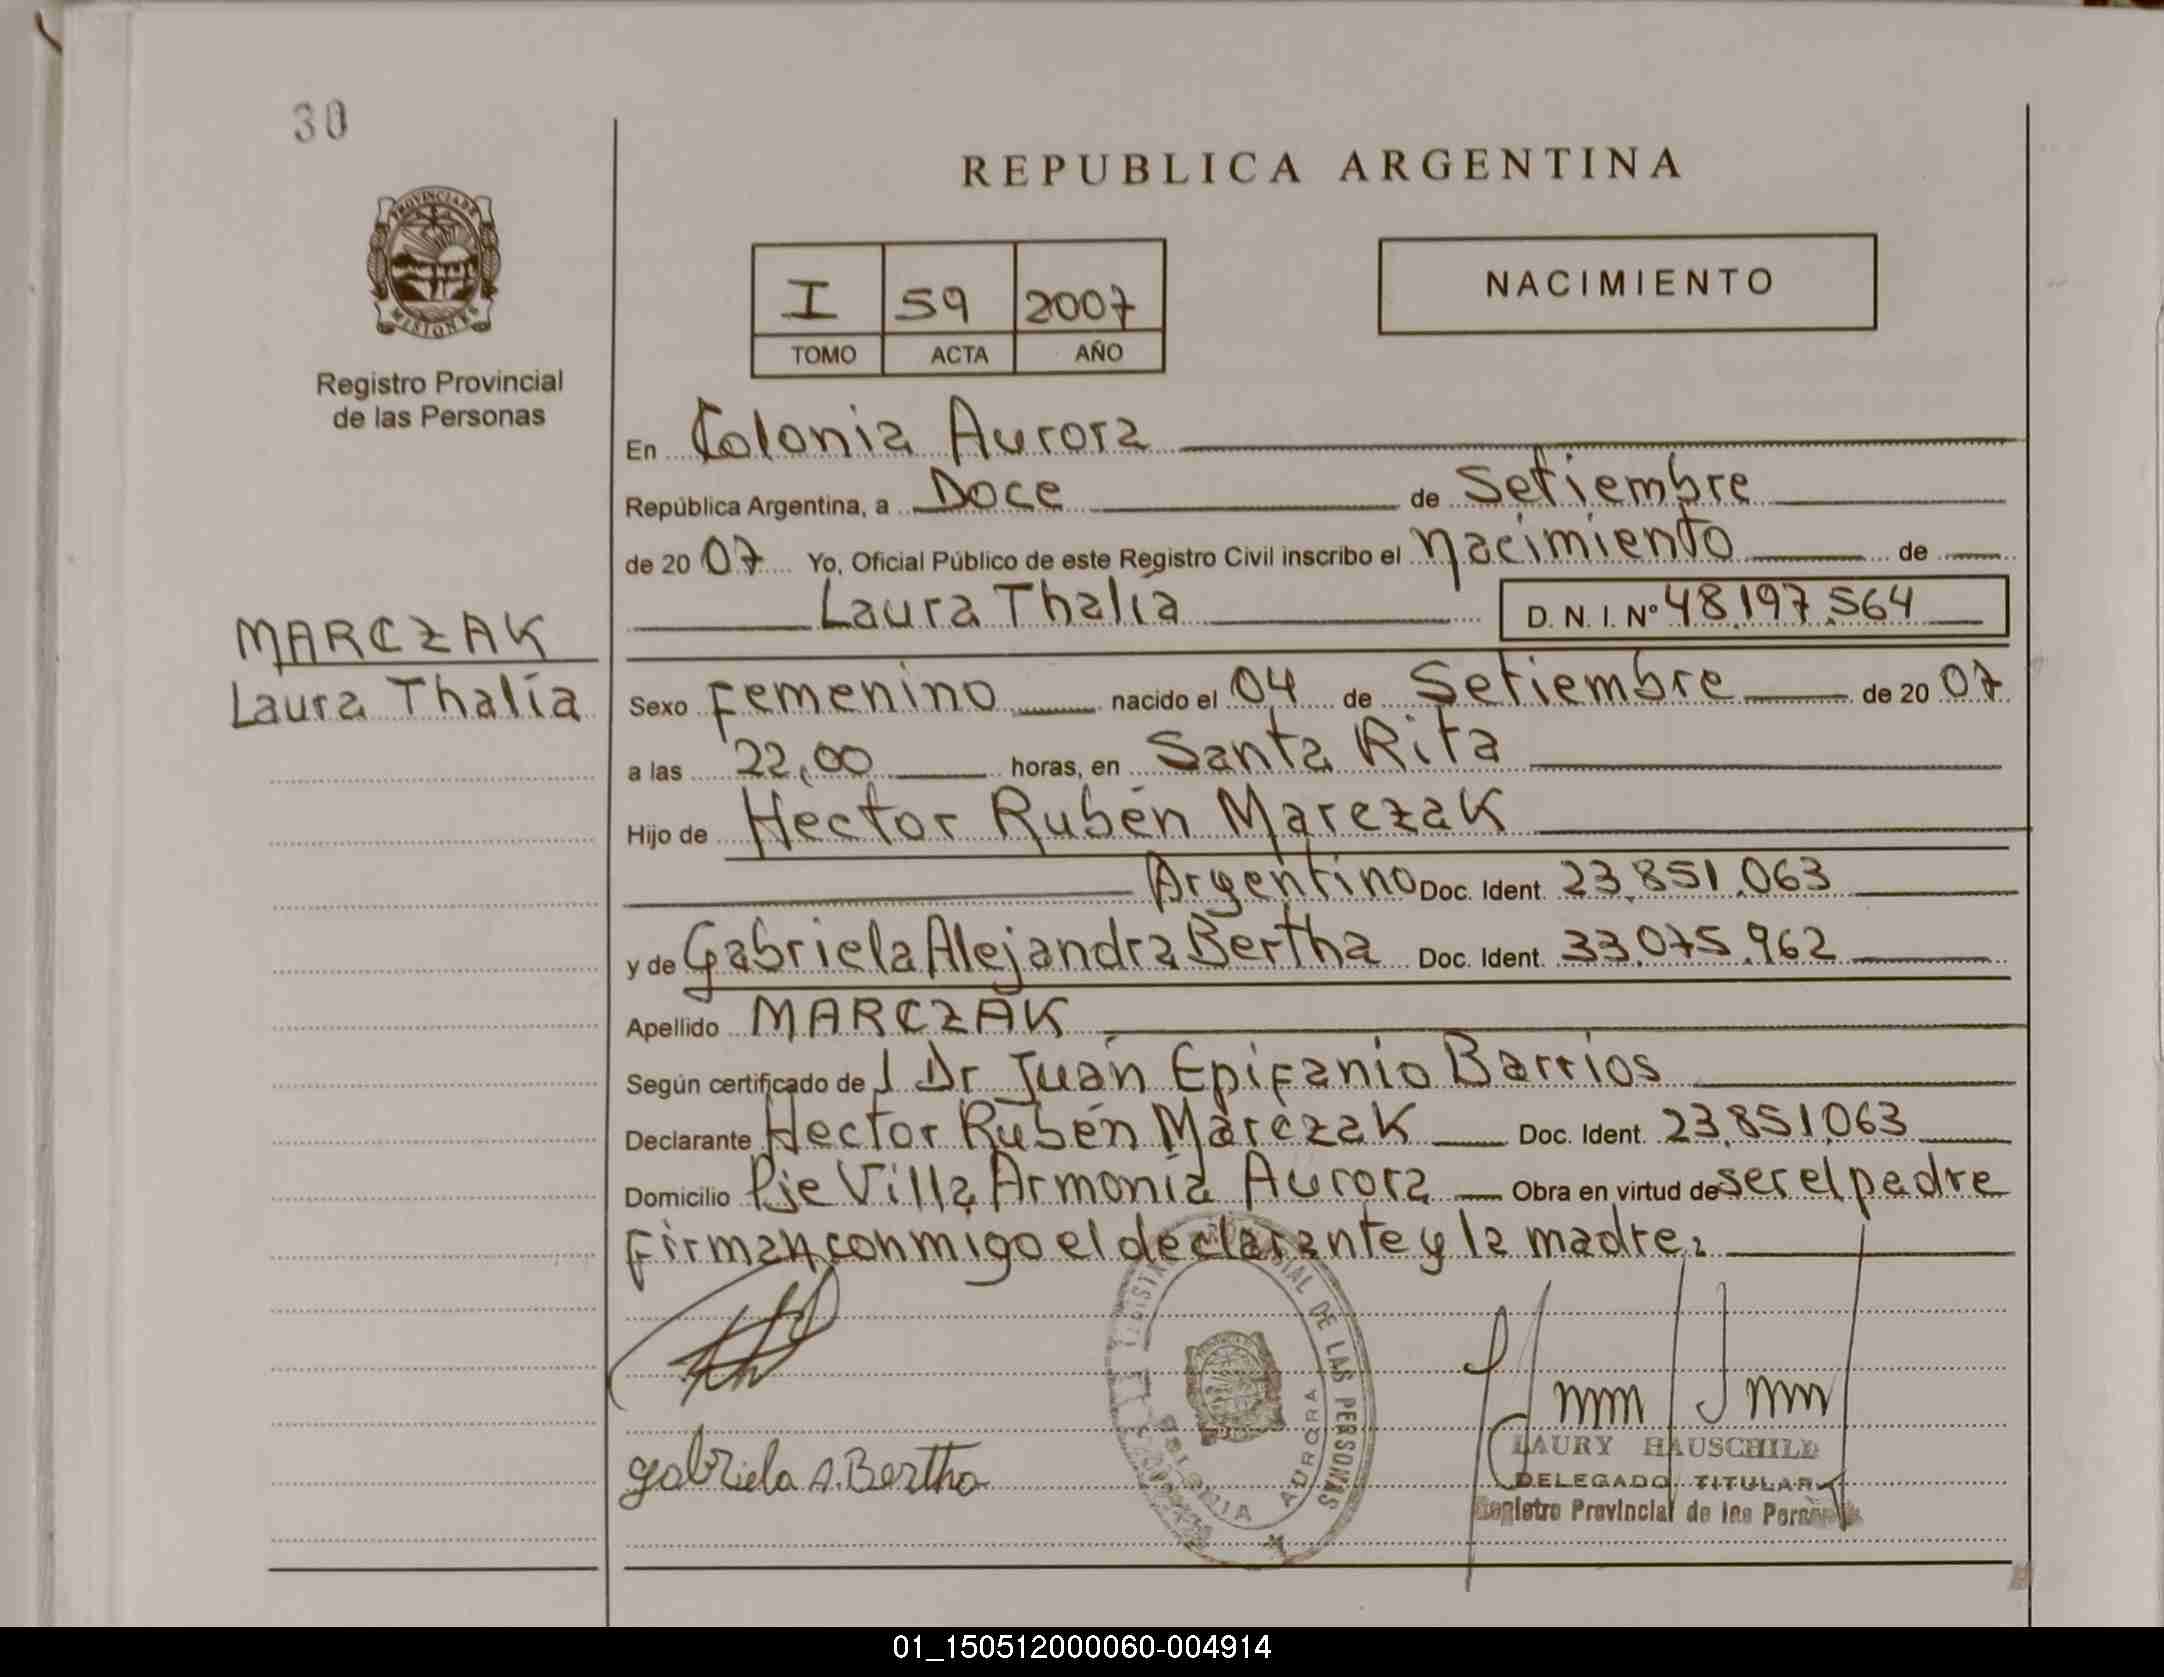 30
REPUBLICA ARGENTINA
PROVINCIA DE
MISIONES
I 59 2007
TOMO ACTA AÑO
NACIMIENTO
Registro Provincial
de las Personas
En Colonia Aurora
República Argentina, a Doce de Setiembre
de 2007 Yo, Oficial Público de este Registro Civil inscribo el Nacimiento de
Laura Thalía D. N. I. Nº 48.197.564
MARCZAK
Laura Thalía
Sexo Femenino nacido el 04 de Setiembre de 2007
a las 22,00 horas, en Santa Rita
Hijo de Hector Rubén Marczak
Argentino Doc. Ident. 23.851.063
y de Gabriela Alejandra Bertha Doc. Ident. 33.075.962
Apellido MARCZAK
Según certificado de l Dr Juan Epifanio Barrios
Declarante Hector Rubén Marczak Doc. Ident. 23.851.063
Domicilio Pje Villa Armonía Aurora Obra en virtud de ser el padre
Firman conmigo el declarante y la madre.
DE LAS PERSONAS
COLONIA AURORA
Gabriela A. Bertha
LAURY HAUSCHILD
DELEGADO TITULAR
Registro Provincial de las Personas
01_150512000060-004914